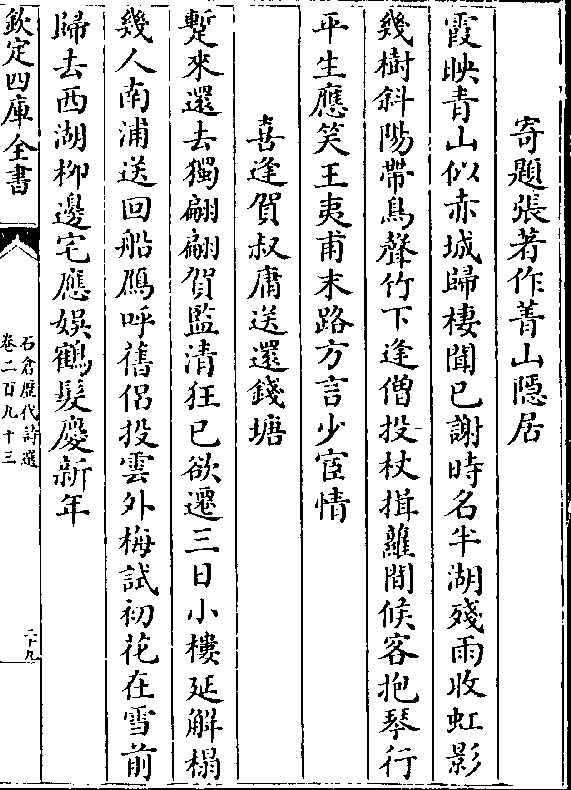 寄題張著作菁山隱居
霞映青山似赤城歸棲聞已謝時名半湖殘雨收虹影
幾樹斜陽帶鳥聲竹下逢僧投杖揖籬間候客抱琴行
平生應笑王夷甫末路方言少宦情
喜逢賀叔庸送還錢塘
蹔來還去獨翩翩賀監清狂已欲遷三日小樓延解榻
幾人南浦送回船鴈呼舊侶投雲外梅試初花在雪前
歸去西湖柳邊宅應娛鶴髮慶新年
欽定四庫全書
石倉歷代詩選
卷二百九十三
二十九